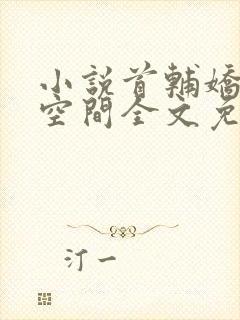 小說首輔嬌
空間全文免
汀一